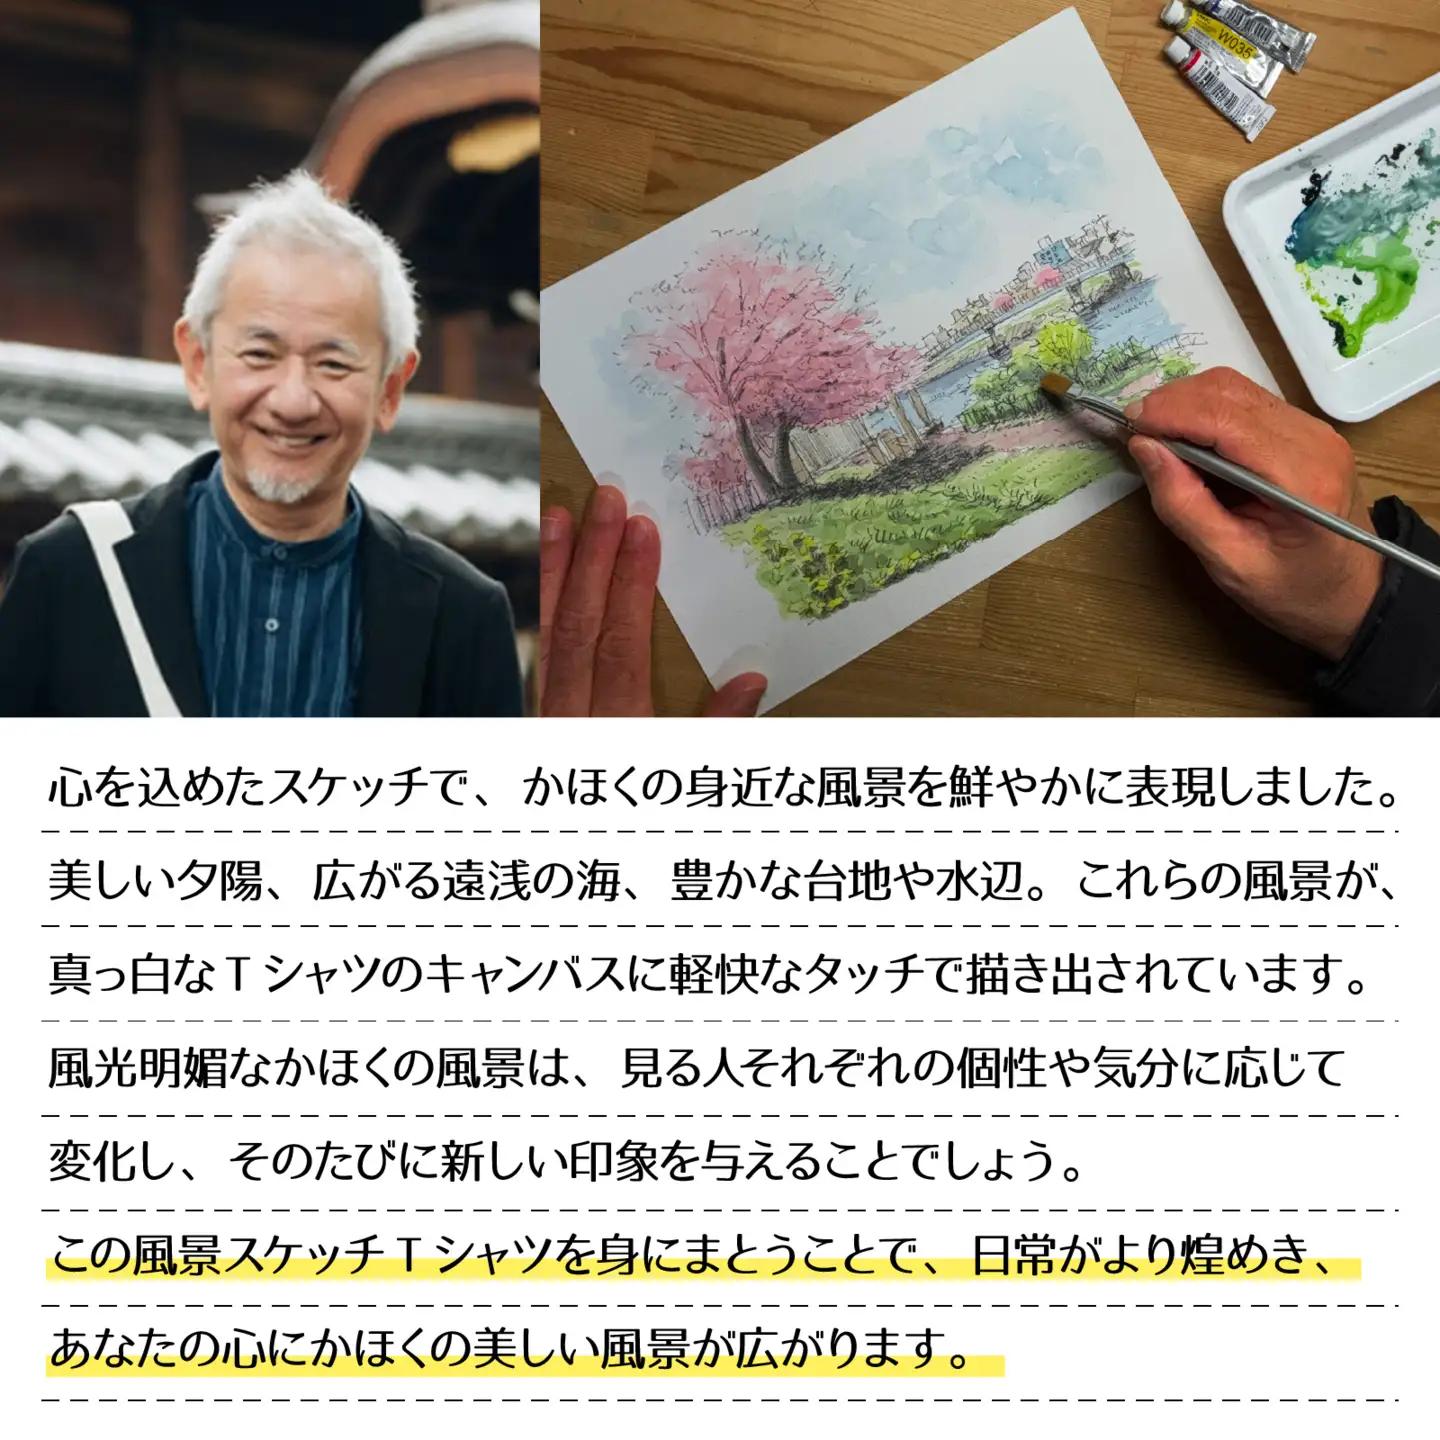 W035
心を込めたスケッチで、かほくの身近な風景を鮮やかに表現しました。
美しい夕陽、広がる遠浅の海、豊かな台地や水辺。これらの風景が、
真っ白なTシャツのキャンバスに軽快なタッチで描き出されています。
風光明媚なかほくの風景は、見る人それぞれの個性や気分に応じて
変化し、そのたびに新しい印象を与えることでしょう。
この風景スケッチTシャツを身にまとうことで、日常がより煌めき、
あなたの心にかほくの美しい風景が広がります。